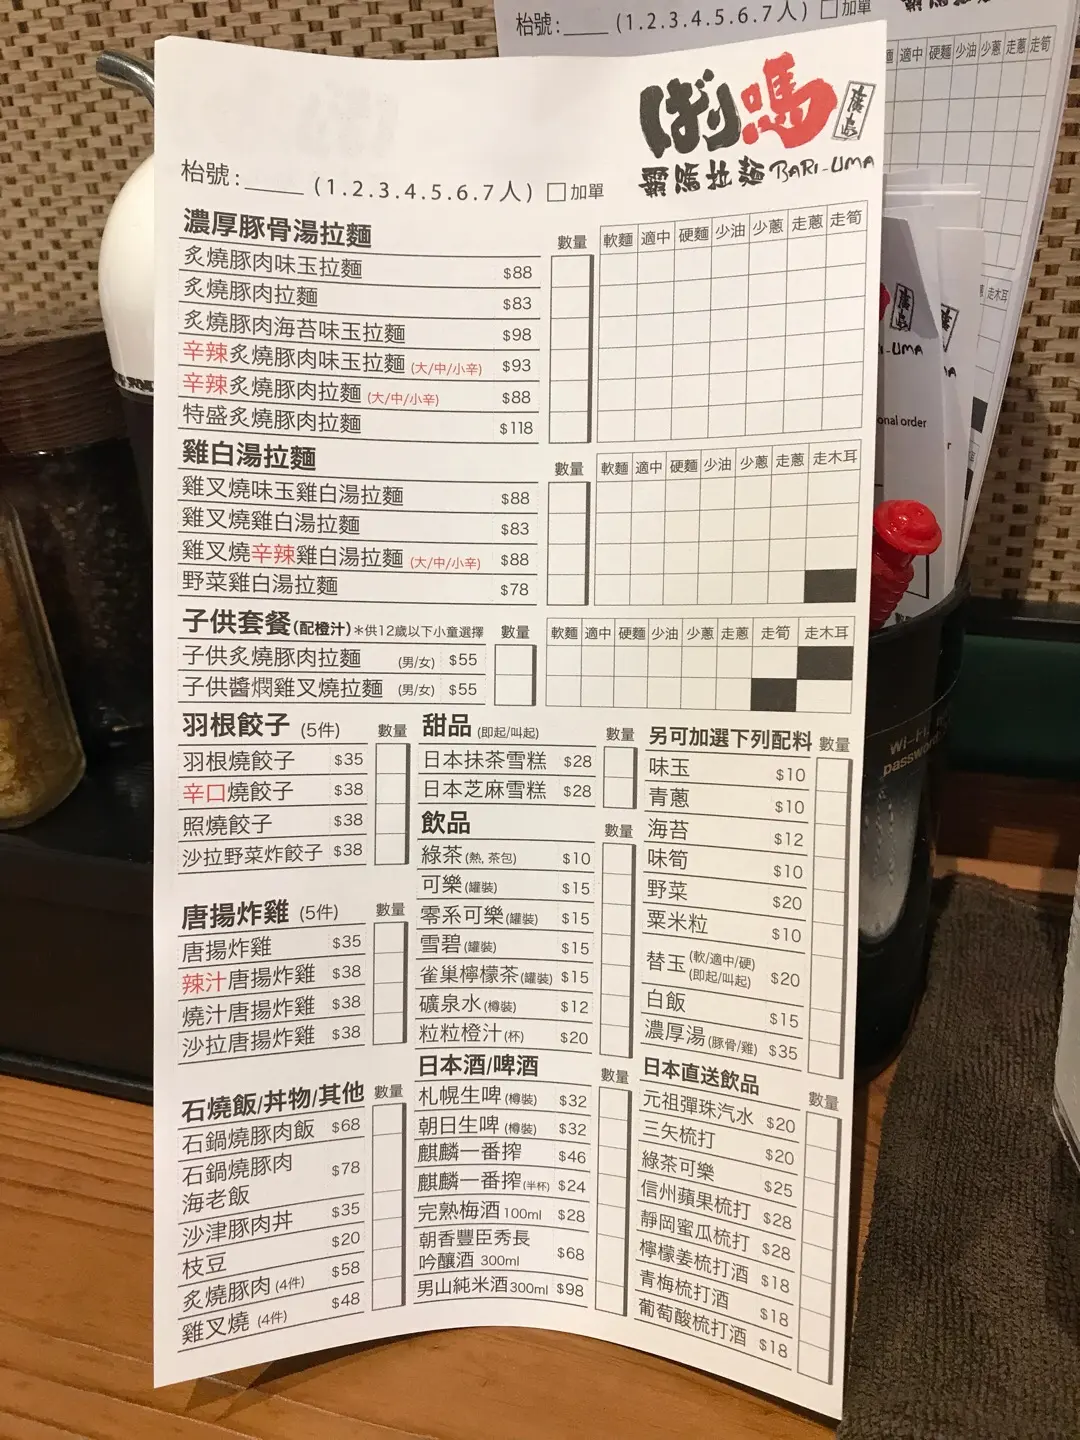 枱號:____ (1.2.3.4.5.6.7人) 加單
適中 硬麵 少油 少蔥 走蔥 走筍
ばり嗎 廣島
霸嗎拉麵 BARI-UMA
枱號:_____ (1.2.3.4.5.6.7人) 加單
濃厚豚骨湯拉麵 數量 軟麵 適中 硬麵 少油 少蔥 走蔥 走筍
炙燒豚肉味玉拉麵 $88
炙燒豚肉拉麵 $83
炙燒豚肉海苔味玉拉麵 $98
辛辣炙燒豚肉味玉拉麵 (大/中/小辛) $93
辛辣炙燒豚肉拉麵 (大/中/小辛) $88
特盛炙燒豚肉拉麵 $118
雞白湯拉麵 數量 軟麵 適中 硬麵 少油 少蔥 走蔥 走木耳
雞叉燒味玉雞白湯拉麵 $88
雞叉燒雞白湯拉麵 $83
雞叉燒辛辣雞白湯拉麵 (大/中/小辛) $88
野菜雞白湯拉麵 $78
子供套餐(配橙汁)*供12歲以下小童選擇 數量 軟麵 適中 硬麵 少油 少蔥 走蔥 走筍 走木耳
子供炙燒豚肉拉麵 (男/女) $55
子供醬燜雞叉燒拉麵 (男/女) $55
羽根餃子 (5件) 數量
羽根燒餃子 $35
辛口燒餃子 $38
照燒餃子 $38
沙拉野菜炸餃子 $38
唐揚炸雞 (5件) 數量
唐揚炸雞 $35
辣汁唐揚炸雞 $38
燒汁唐揚炸雞 $38
沙拉唐揚炸雞 $38
石燒飯/丼物/其他 數量
石鍋燒豚肉飯 $68
石鍋燒豚肉
海老飯 $78
沙津豚肉丼 $35
枝豆 $20
炙燒豚肉 (4件) $58
雞叉燒 (4件) $48
甜品 (即起/叫起) 數量
日本抹茶雪糕 $28
日本芝麻雪糕 $28
飲品 數量
綠茶(熱, 茶包) $10
可樂(罐裝) $15
零系可樂(罐裝) $15
雪碧(罐裝) $15
雀巢檸檬茶(罐裝) $15
礦泉水(樽裝) $12
粒粒橙汁(杯) $20
日本酒/啤酒 數量
札幌生啤(樽裝) $32
朝日生啤(樽裝) $32
麒麟一番搾 $46
麒麟一番搾(半杯) $24
完熟梅酒100ml $28
朝香豐臣秀長
吟釀酒 300ml $68
男山純米酒300ml $98
另可加選下列配料 數量
味玉 $10
青蔥 $10
海苔 $12
味筍 $10
野菜 $20
粟米粒 $10
替玉 (軟/適中/硬) (即起/叫起) $20
白飯 $15
濃厚湯(豚骨/雞) $35
日本直送飲品 數量
元祖彈珠汽水 $20
三矢梳打 $20
綠茶可樂 $25
信州蘋果梳打 $28
靜岡蜜瓜梳打 $28
檸檬姜梳打酒 $18
青梅梳打酒 $18
葡萄酸梳打酒 $18
走木耳
廣島
-UMA
onal order
Wi-Fi
password